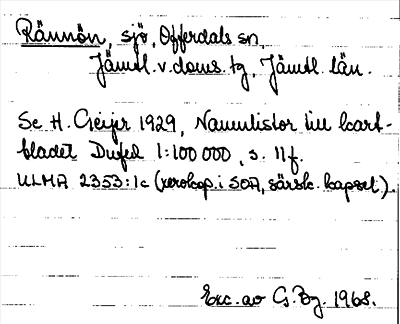 Rännön, sjö, Offerdals sn,
Jämtl. v. doms. tg, Jämtl. län.
Se H. Geijer 1929, Namnlistor till kart-
bladet Dufed 1:100 000, s. 11 f.
ULMA 2353:1c (xerokop. i SOA, särsk. kapsel).
Exc. av G. By. 1968.